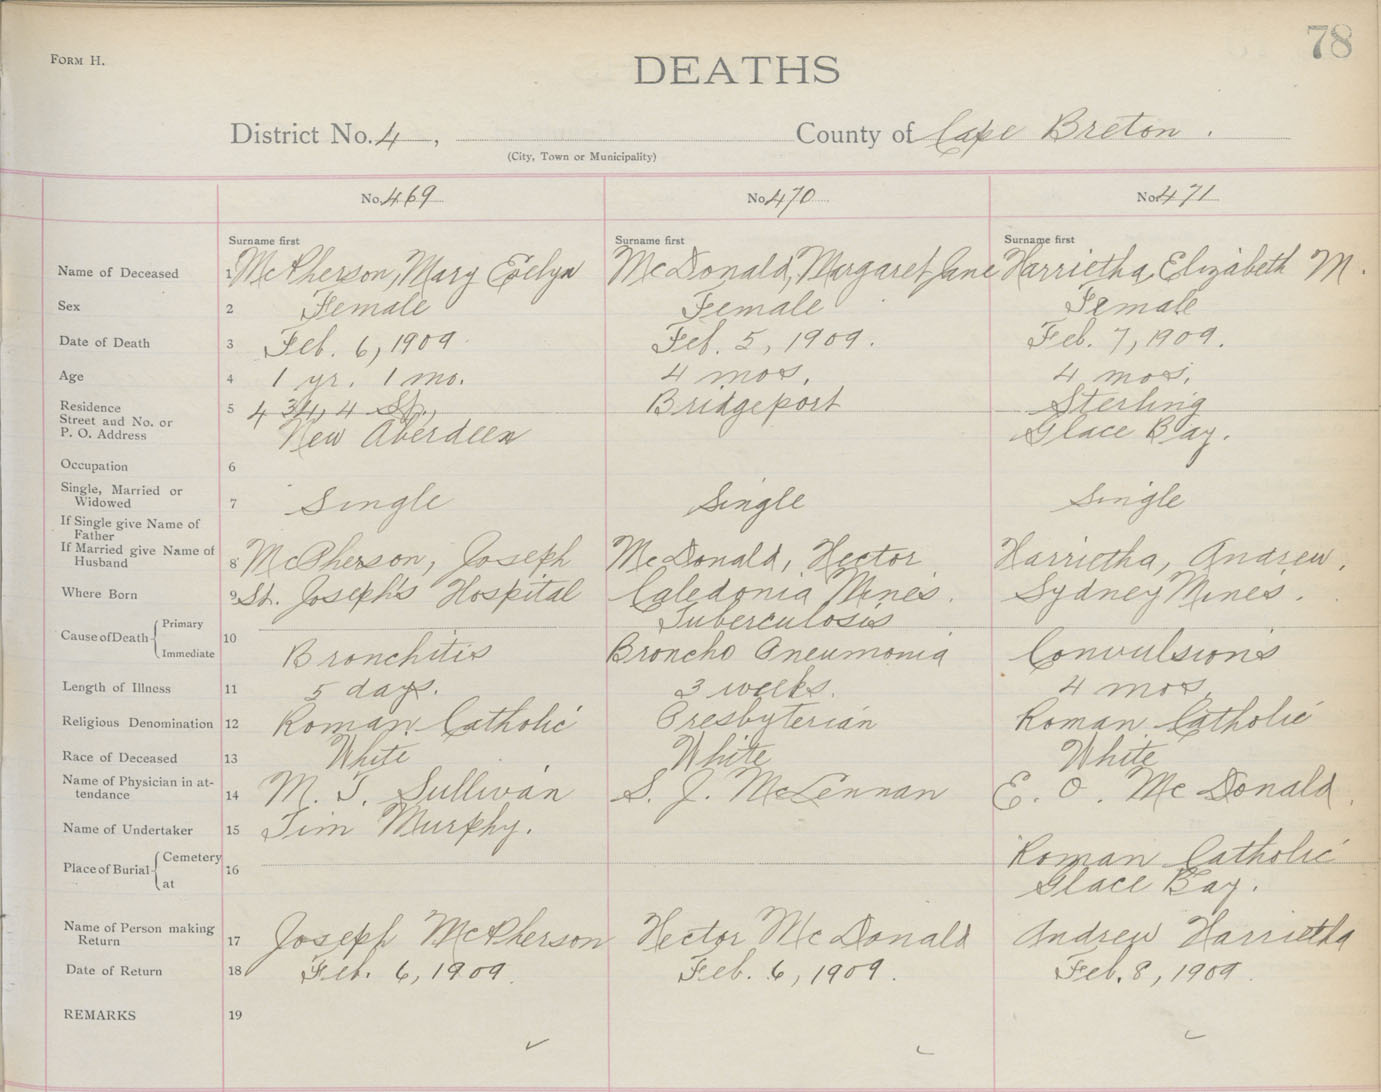 78
FORM H.
DEATHS
District No. 4, County of Cape Breton.
(City, Town or Municipality)
No. 469 No. 470 No. 471
Surname first Surname first Surname first
Name of Deceased 1 McPherson, Mary Evelyn McDonald, Margaret Jane Harrietha, Elizabeth M.
Sex 2 Female Female Female
Date of Death 3 Feb. 6, 1909 Feb. 5, 1909. Feb. 7, 1909.
Age 4 1 yr. 1 mo. 4 mos. 4 mos.
Residence 5 4 34, 4 St., Bridgeport Sterling
Street and No. or
P. O. Address New Aberdeen Glace Bay.
Occupation 6
Single, Married or
Widowed 7 Single Single Single
If Single give Name of
Father
If Married give Name of
Husband 8 McPherson, Joseph McDonald, Hector Harrietha, Andrew.
Where Born 9 St. Joseph's Hospital Caledonia Mines. Sydney Mines.
Cause of Death Primary 10 Tuberculosis
Immediate Bronchitis Broncho Pneumonia Convulsions
Length of Illness 11 5 days. 3 weeks. 4 mos.
Religious Denomination 12 Roman Catholic Presbyterian Roman Catholic
Race of Deceased 13 White White White
Name of Physician in at-
tendance 14 M. T. Sullivan S. J. McLennan E. O. McDonald.
Name of Undertaker 15 Jim Murphy.
Place of Burial Cemetery 16 Roman Catholic
at Glace Bay.
Name of Person making
Return 17 Joseph McPherson Hector McDonald Andrew Harrietha
Date of Return 18 Feb. 6, 1909 Feb. 6, 1909. Feb. 8, 1909.
REMARKS 19